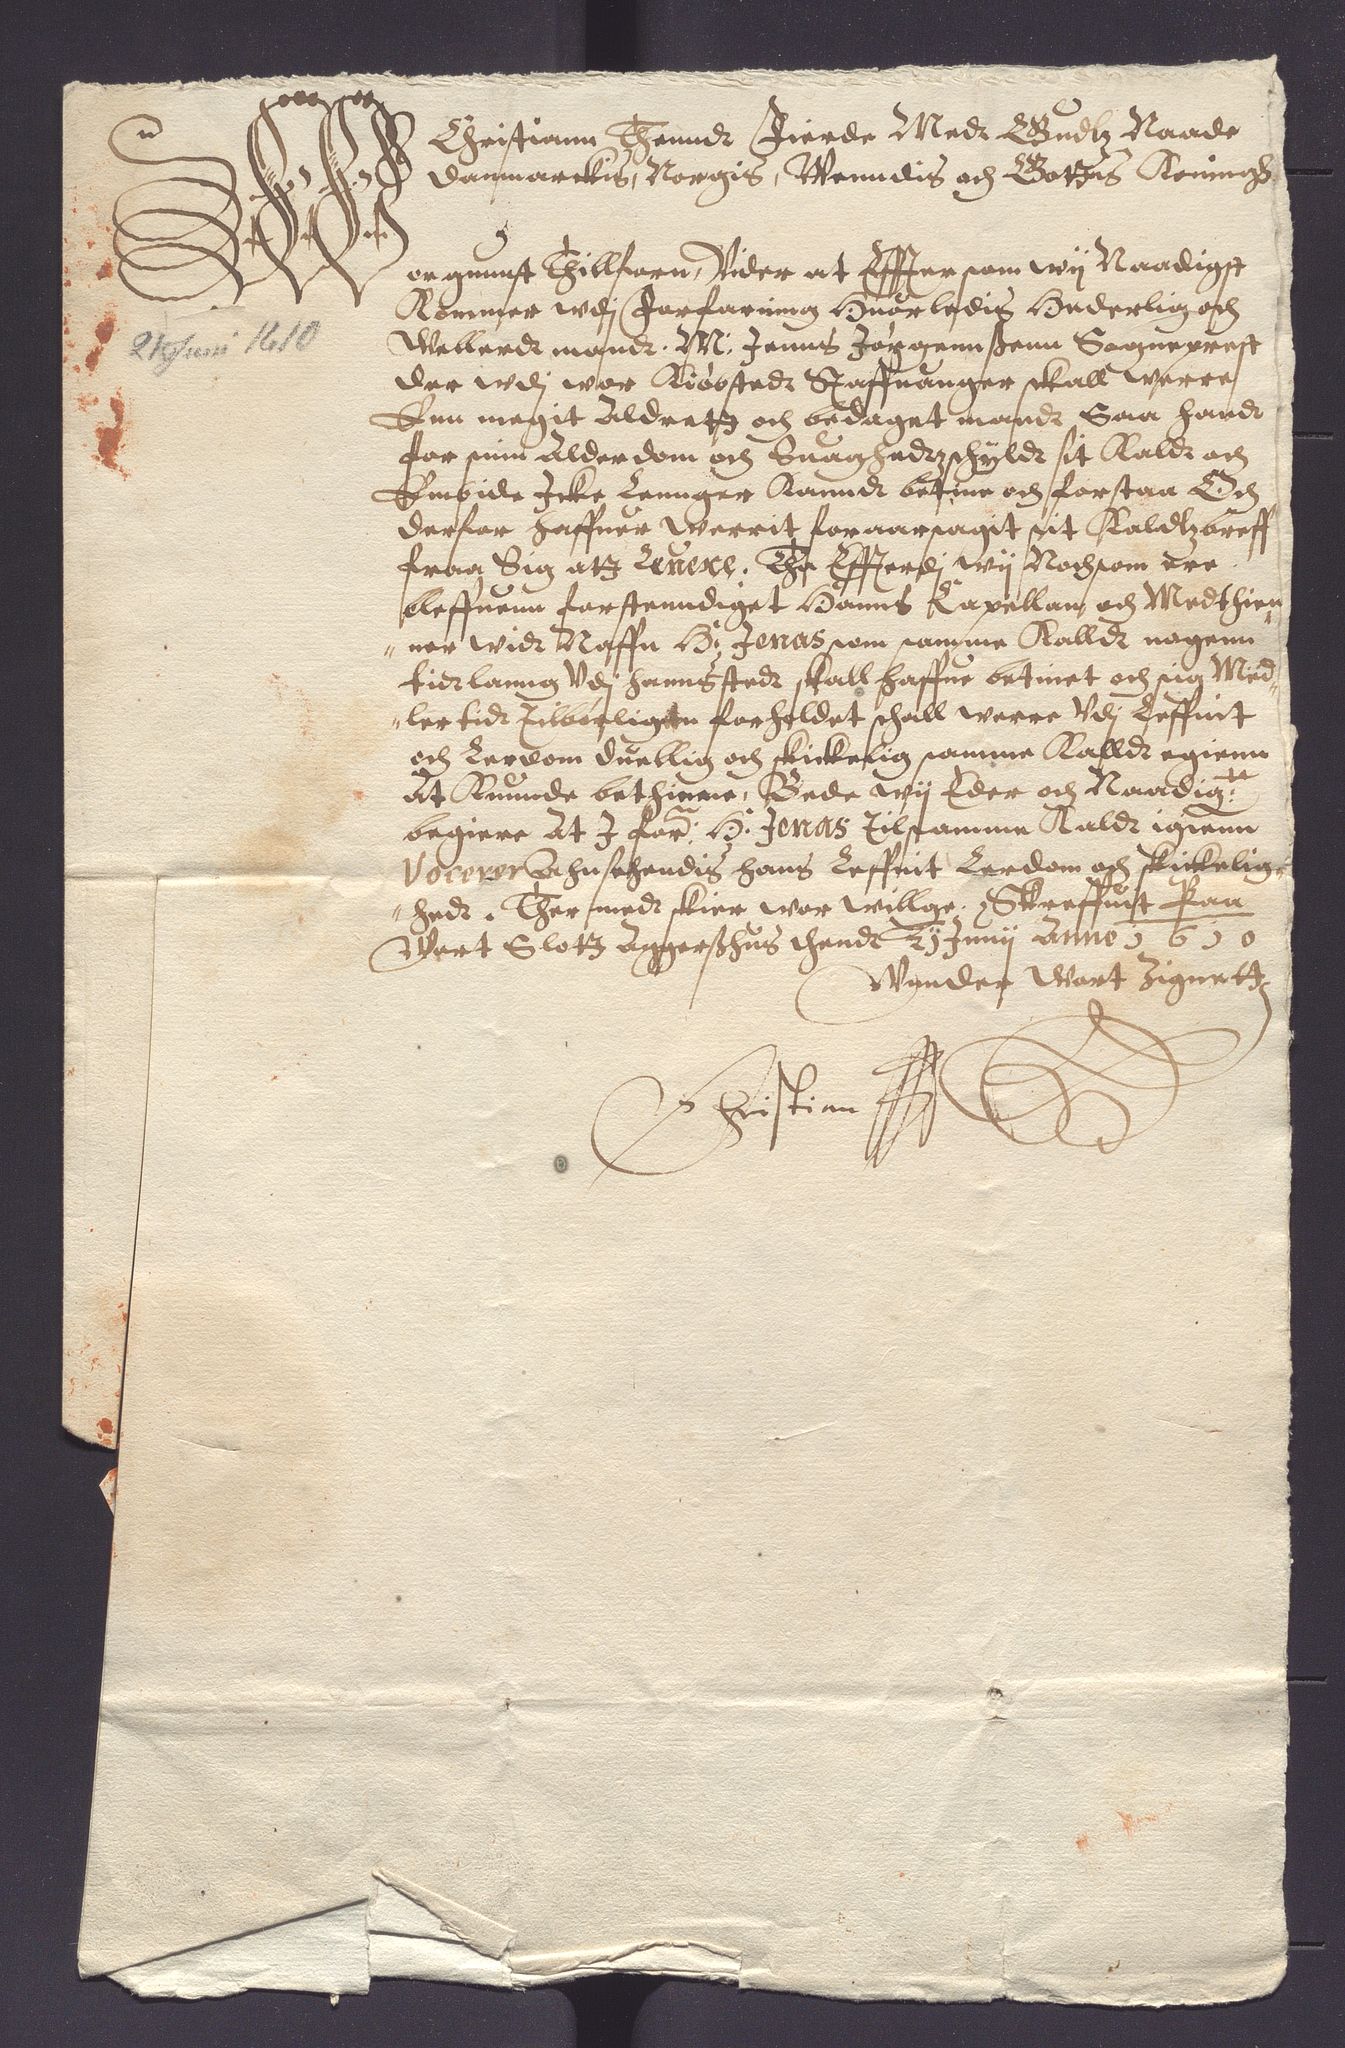 Christiann Thennd Fierde Med Gudtz Naade
Danmarckis, Norgis, Wenndis och Gottis Konningh
Wor gunnst Thillforn, Wider at Effttersom wij Naadigst
Kommer wdj forfaring Huorledis Hederlig och
Wellerdt mandt. M: Jenns Jørgennßenn Sogneprest
der wdj wor Kiøbstedt Staffuanger skall werre
Enn megit Aldretz och bedaget mandt Saa handt
for sinn Alderdom och Suaghedtz schyldt sit Kaldt och
Embide Icke Lennger Kanndt betine och forstaa Och
derfor haffuer werrit foraarsagit sit Kaldtzbreff
fraa Sig att Leuere. Tha Effterdj wij Nochsom ere
bleffuenn forstenndiget Hanns Capellan och Medthien
ner widt Naffn H: Jonas som samme Kalldt nogenn
tidtlanng Vdj hannsstedt skall haffue betinet och sig Med
lertidt Tilbørligen forholdet schall werre Vdj Leffnit
och Lerdom duellig och skickelig samme Kalldt egienn
At Kunde bethienne, Bede wij Eder och Naadigst
begiere At I for: H: Jonas Til samme Kaldt igienn
Vocerer Ahnsehendis hans Leffnit Lerdom och skickelig
hedt. Ther medt skier wor willge. Skreffuit Paa
Wort Slott Aggerßhus thendt 21 Junij Anno 1610
Wnnder Wort Zignett
Christian
21 Juni 1610